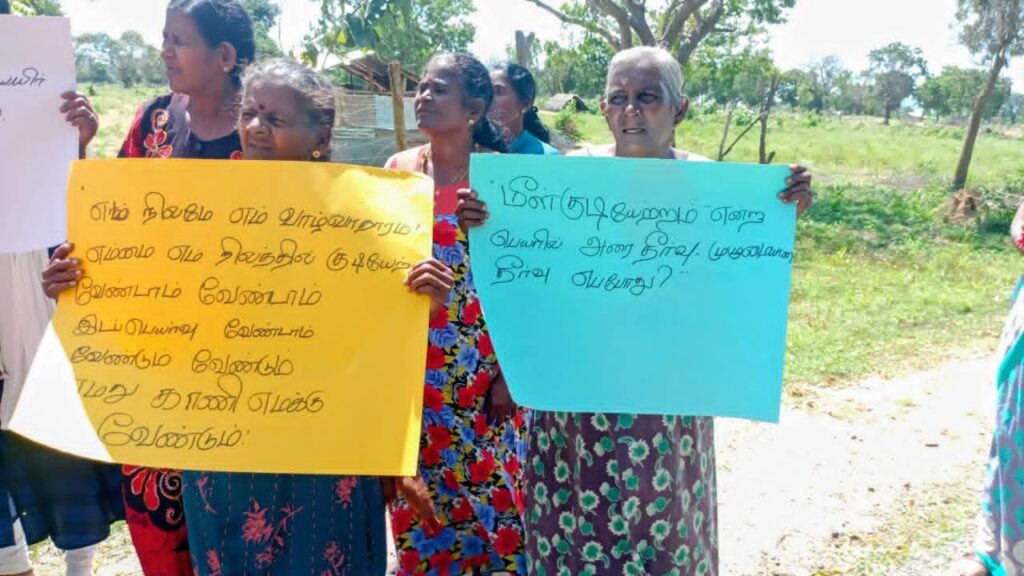 எம் நிலமே எம் வாழ்வாதாரம்!
எம்மை எம் நிலத்தில் குடியேற்ற
வேண்டாம் வேண்டாம்
இடப்பெயர்வு வேண்டாம்
வேண்டும் வேண்டும்
எமது காணி எமக்கு
வேண்டும்!
"மீள்குடியேற்றம்" என்ற
பெயரில் அரை தீர்வு. முழுமையான
தீர்வு எப்போது?